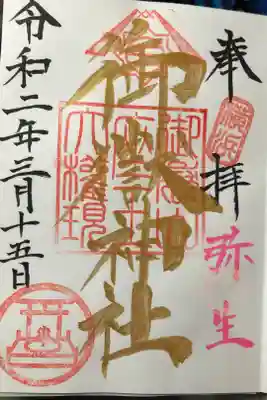 奉拝
横浜
弥生
御嶽神社
御嶽山
大権現
令和二年三月十五日